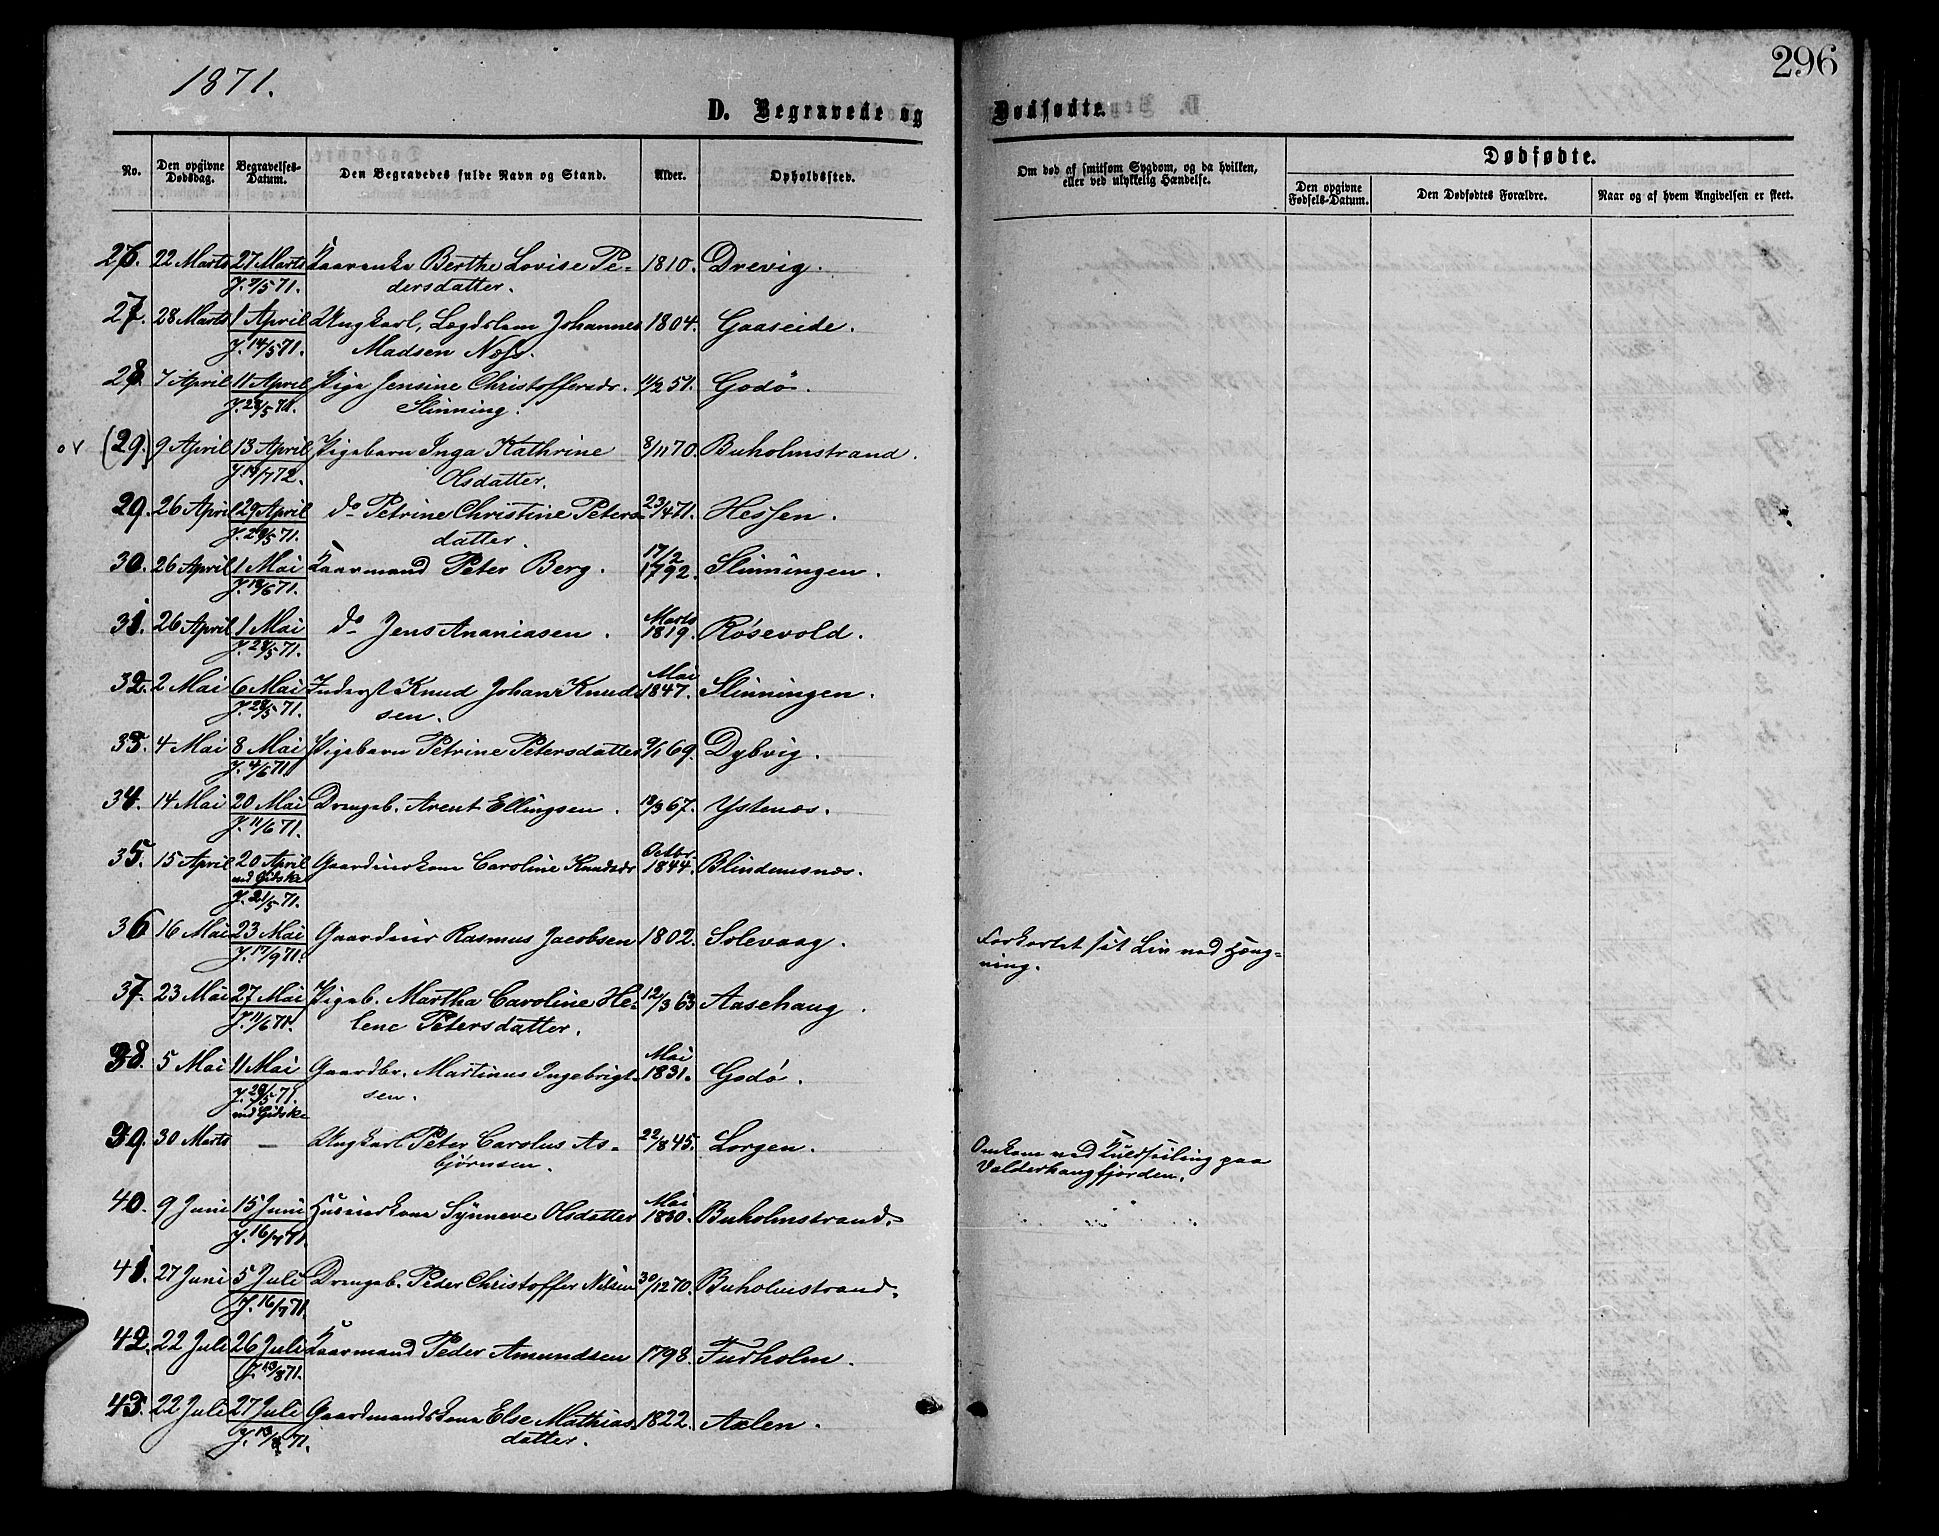 1871.
296
D. Begravede og Dødfødte.
No. Den opgivne Dødsdag. Begravelses-Datum. Den Begravedes fulde Navn og Stand. Alder. Opholdssted. Om død af smitsom Sygdom, og da hvilken, eller ved ulykkelig Hændelse. Dødfødte.
Den opgivne Fødsels-Datum. Den Dødfødtes Forældre. Naar og af hvem Angivelsen er skeet.
26. 22 Marts 27 Marts Kaarenke Berthe Lovise Pe- 1810. Drevig.
J. 7/5 71. dersdatter.
27. 28 Marts 1 April Ungkarl, Lægdslem Johannes 1804. Gaaseide.
J. 14/5 71. Madsen Næss.
28. 7 April 11 April Pige Jensine Christoffersdr. 11/2 51. Godø.
J. 28/5 71. Slinning.
(29.) 9 April 13 April Pigebarn Inga Kathrine 8/11 70. Buholmstrand.
J. 14/7 72. Olsdatter.
29. 26 April 29 April do Petrine Christine Peters- 23/4 71. Hessen.
J. 29/5 71. datter.
30. 26 April 1 Mai Kaarmand Peter Berg. 17/2 1792. Slinningen.
J. 18/6 71.
31. 26 April 1 Mai do Jens Ananiasen. Marts 1819. Røsevold.
J. 28/5 71.
32. 2 Mai 6 Mai Inderst Knud Johan Knud- Mai 1847. Slinningen.
J. 28/5 71. sen.
33. 4 Mai 8 Mai Pigebarn Petrine Petersdatter 9/1 69. Dybvig.
J. 4/6 71.
34. 14 Mai 20 Mai Drengeb. Arent Ellingsen. 18/3 67. Ystenæs.
J. 11/6 71.
35. 15 April 20 April Gaardmerkone Caroline Knudsdr. Octbr. 1844. Blindemsnæs.
ved Gidske
J. 21/5 71.
36 16 Mai 23 Mai Gaardmer Rasmus Jacobsen 1802. Solevaag. Forkortet sit Liv ved Hæng-
J. 17/9 71. ning.
37. 23 Mai 27 Mai Pigeb. Martha Caroline He- 12/3 63 Aasehaug.
J. 11/6 71. lene Petersdatter.
38. 5 Mai 11 Mai Gaardbr. Martinus Ingebrigt- Mai 1831. Godø.
J. 28/5 71. sen.
ved Gidske
39. 30 Marts — Ungkarl Peter Carolus As- 22/8 45. Lorgen. Omkom ved Kuldseiling paa
bjørnsen. Valderhaugfjorden.
40. 9 Juni 15 Juni Husmerkone Synneve Olsdatter Mai 1830. Buholmstrand.
J. 16/7 71.
41. 27 Juni 5 Juli Drengeb. Peder Christoffer Nilsen 30/12 70. Buholmstrand.
J. 16/7 71.
42. 22 Juli 26 Juli Kaarmand Peder Amundsen 1798. Furholm.
J. 13/8 71.
43. 22 Juli 27 Juli Gaardmandskone Else Mathias- 1822. Aalen.
J. 13/8 71. datter.